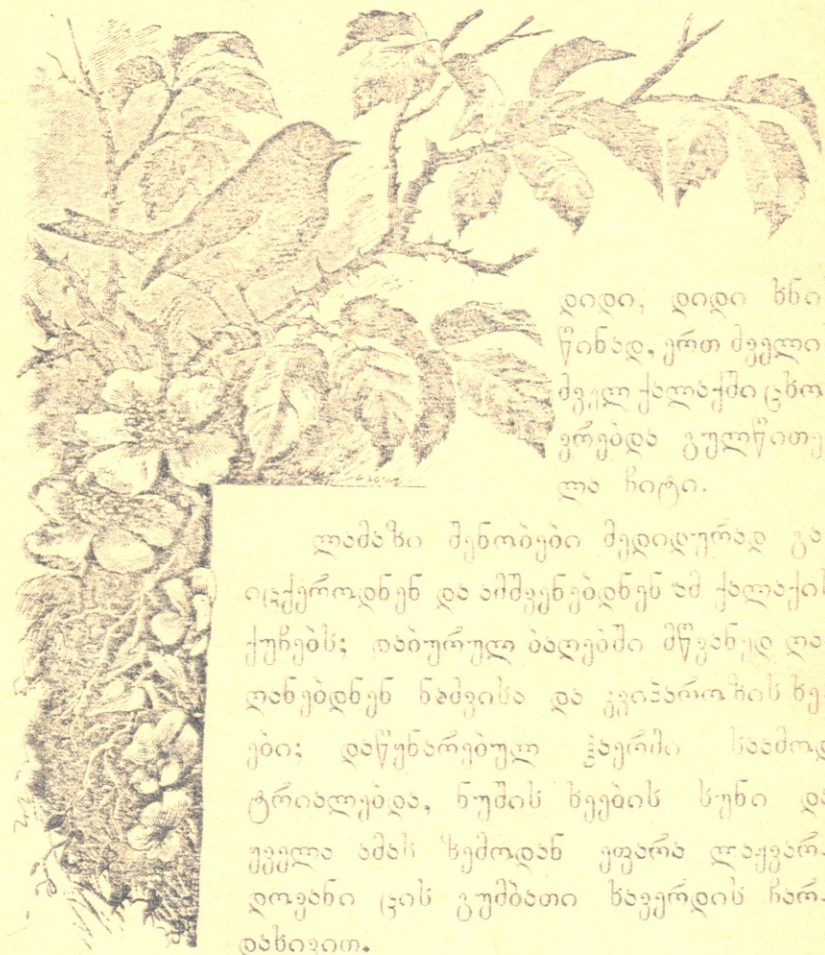 დიდი, დიდი ხნი
წინად, ერთ ძველი
ძველ ქალაქში ცხო
ვრებდა გულწითე
ლა ჩიტი.
ლამაზი შენობები მედიდურად გა
იცქეროდნენ და ამშვენებდნენ ამ ქალაქის
ქუჩებს; დაბურულ ბაღებში მწვანედ ღა
ღანებდნენ ნაძვისა და კვიპაროზის ხე
ები; დაწყნარებულ ჰაერში საამოდ
ტრიალებდა, ნუშის ხეების სუნი და
ყველა ამას ზემოდან ეფარა ლაჟვარ
დოვანი ცის გუმბათი ხავერდის ჩარ
დახივით.